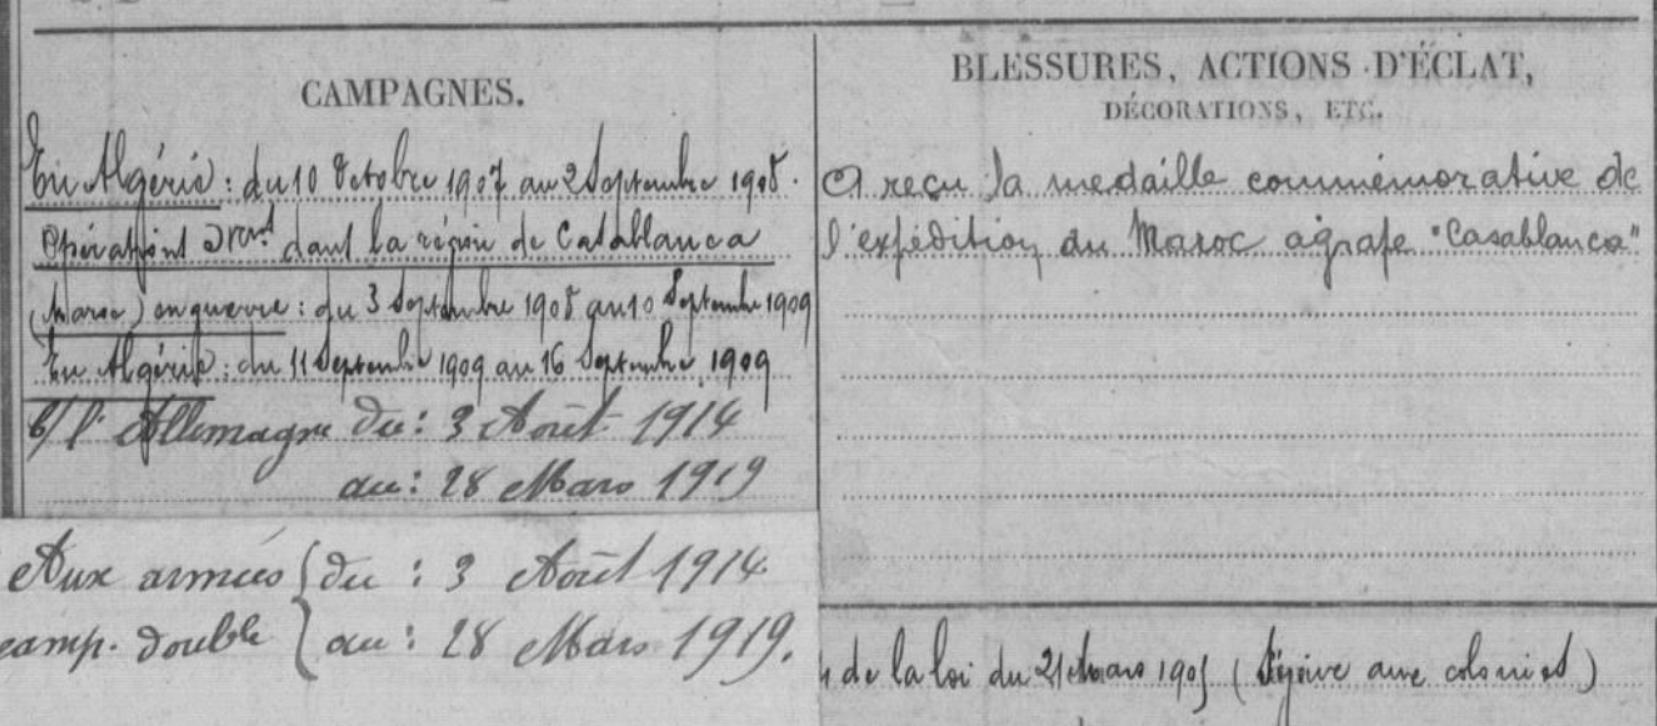 CAMPAGNES.
En Algérie : du 10 Octobre 1907 au 2 Septembre 1908.
Opérations dans la région de Casablanca
(Maroc) en guerre : du 3 Septembre 1908 au 10 Septembre 1909
En Algérie : du 11 Septembre 1909 au 16 Septembre 1909
c/ l'Allemagne du : 3 Août 1914
au : 28 Mars 1919
Aux armées du : 3 Août 1914
camp. double au : 28 Mars 1919.
BLESSURES, ACTIONS D'ÉCLAT,
DÉCORATIONS, ETC.
A reçu la medaille commémorative de
l'expédition du Maroc agrafe "Casablanca"
de la loi du 21 Mars 1905 ( aux colonies)